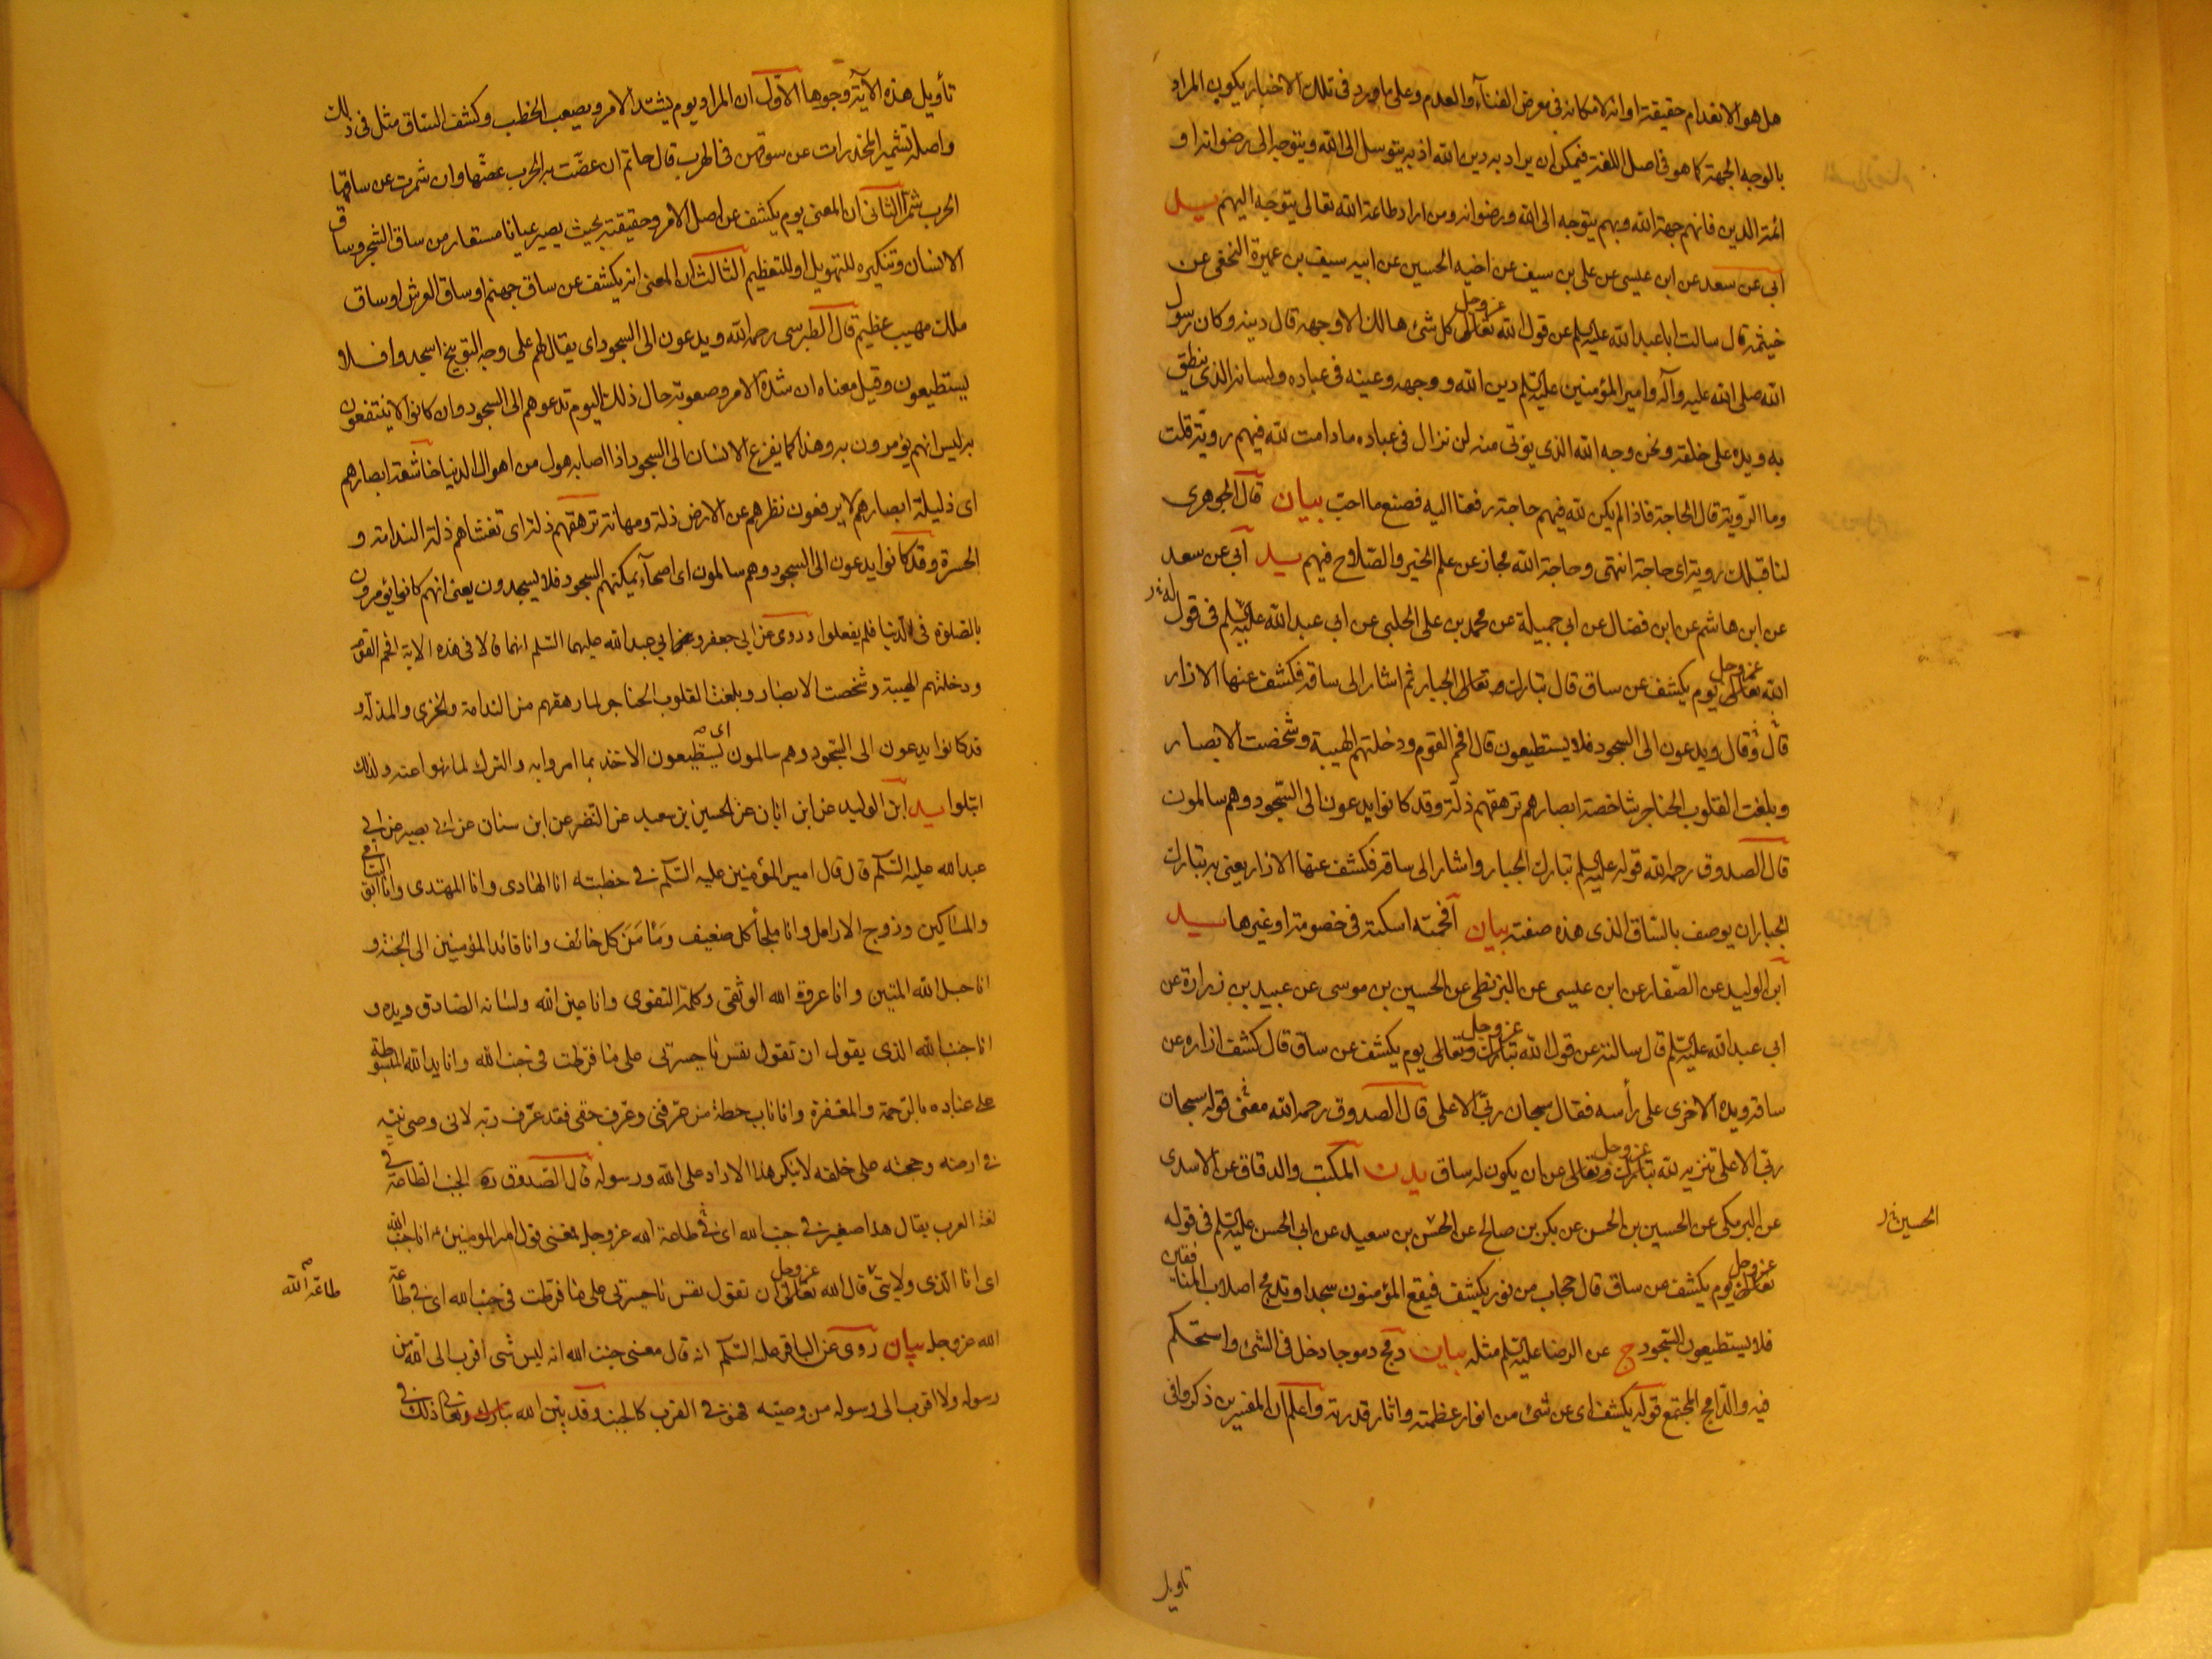 هل هو الانعدام حقيقة او انه لامكانه في معرض الفناء والعدم وعلى ما ورد في تلك الاخبار يكون المراد
بالوجه الجهة كما هو في اصل اللغة فيمكن ان يراد به دين الله اذ به يتوسل الى الله ويتوجه الى رضوانه او
ائمة الدين فانهم جهة الله وبهم يتوجه الى الله ورضوانه ومن اراد طاعة الله تعالى يتوجه اليهم يد
ابي عن سعد عن ابن عيسى عن علي بن سيف عن اخيه الحسين عن ابيه سيف بن عميرة النخعي عن
خيثمة قال سالت ابا عبد الله عليه السلم عن قول الله تعالى عز وجل كل شئ هالك الا وجهه قال دينه وكان رسول
الله صلى الله عليه وآله وامير المؤمنين عليه السلم دين الله ووجهه وعينه في عباده ولسانه الذي ينطق
به ويده على خلقه ونحن وجه الله الذي يؤتى منه لن نزال في عباده ما دامت لله فيهم روية قلت
وما الروية قال الحاجة فاذا لم يكن لله فيهم حاجة رفعنا اليه فصنع ما احب بيان قال الجوهري
لنا قبلك روية اي حاجة انتهى وحاجة الله مجاز عن علم الخير والصلاح فيهم يد ابي عن سعد
عن ابن هاشم عن ابن فضال عن ابي جميلة عن محمد بن علي الحلبي عن ابي عبد الله عليه السلم في قول
الله تعالى عز وجل يوم يكشف عن ساق قال تبارك وتعالى الجبار ثم اشار الى ساقه فكشف عنها الازار
قال وقال ويدعون الى السجود فلا يستطيعون قال افحم القوم ودخلتهم الهيبة وشخصت الابصار
وبلغت القلوب الحناجر شاخصة ابصارهم ترهقهم ذلة وقد كانوا يدعون الى السجود وهم سالمون
قال الصدوق رحمه الله قوله عليه السلم تبارك الجبار واشار الى ساقه فكشف عنها الازار يعني به تبارك
الجبار ان يوصف بالساق الذي هذه صفته بيان افحمته اسكته في خصومة او غيرها يد
ابن الوليد عن الصفار عن ابن عيسى عن البزنطي عن الحسين بن موسى عن عبيد بن زرارة عن
ابي عبد الله عليه السلم قال سالته عن قول الله تبارك وتعالى عز وجل يوم يكشف عن ساق قال كشف ازاره عن
ساقه ويده الاخرى على رأسه فقال سبحان ربي الاعلى قال الصدوق رحمه الله معنى قوله سبحان
ربي الاعلى تنزيه لله تبارك وتعالى عز وجل عن ان يكون له ساق يد ن المكتب والدقاق عن الاسدي
عن البرمكي عن الحسين بن الحسن عن بكر بن صالح عن الحسن بن سعيد عن ابي الحسن عليه السلم في قوله
الحسين
تعالى عز وجل يوم يكشف عن ساق قال حجاب من نور يكشف فيقع المؤمنون سجدا وتدمج اصلاب المنافقين
فلا يستطيعون السجود ج عن الرضا عليه السلم مثله بيان دمج دموجا دخل في الشئ واستحكم
فيه والدامج المجتمع قوله يكشف اي عن شئ من انوار عظمته واثار قدرته واعلم ان المفسرين ذكروا في
تاويل
تأويل هذه الآية وجوها الاول ان المراد يوم يشتد الامر ويصعب الخطب وكشف الساق مثل في ذلك
واصله تشمير المخدرات عن سوقهن في الهرب قال حاتم ان عضت به الحرب عضها وان شمرت عن ساقها
الحرب شمرا الثاني ان المعنى يوم يكشف عن اصل الامر وحقيقته بحيث يصير عيانا مستعار من ساق الشجر وساق
الانسان وتنكيره للتهويل او للتعظيم الثالث ان المعنى انه يكشف عن ساق جهنم او ساق العرش او ساق
ملك مهيب عظيم قال الطبرسي رحمه الله ويدعون الى السجود اي يقال لهم على وجه التوبيخ اسجدوا فلا
يستطيعون وقيل معناه ان شدة الامر وصعوبة حال ذلك اليوم تدعوهم الى السجود وان كانوا لا ينتفعون
به ليس انهم يؤمرون به وهذا كما يفزع الانسان الى السجود اذا اصابه هول من اهوال الدنيا خاشعة ابصارهم
اي ذليلة ابصارهم لا يرفعون نظرهم عن الارض ذلة ومهانة ترهقهم ذلة اي تغشاهم ذلة الندامة و
الحسرة وقد كانوا يدعون الى السجود وهم سالمون اي اصحاء يمكنهم السجود فلا يسجدون يعني انهم كانوا يؤمرون
بالصلوة في الدنيا فلم يفعلوا وروى عن ابي جعفر وعن ابي عبد الله عليهما السلم انهما قالا في هذه الاية افحم القوم
ودخلتهم الهيبة وشخصت الابصار وبلغت القلوب الحناجر لما رهقهم من الندامة والخزي والمذلة و
قد كانوا يدعون الى السجود وهم سالمون اي يستطيعون الاخذ بما امروا به والترك لما نهوا عنه ولذلك
ابتلوا يد ابن الوليد عن ابن ابان عن الحسين بن سعيد عن النضر عن ابن سنان عن ابي بصير عن ابي
عبد الله عليه السلم قال قال امير المؤمنين عليه السلم في خطبته انا الهادي وانا المهتدي وانا ابو اليتامى
والمساكين وزوج الارامل وانا ملجأ كل ضعيف ومأمن كل خائف وانا قائد المؤمنين الى الجنة و
انا حبل الله المتين وانا عروة الله الوثقى وكلمة التقوى وانا عين الله ولسانه الصادق ويده و
انا جنب الله الذي يقول ان تقول نفس يا حسرتى على ما فرطت في جنب الله وانا يد الله المبسوطة
على عباده بالرحمة والمغفرة وانا باب حطة من عرفني وعرف حقي فقد عرف ربه لاني وصي نبيه
في ارضه وحجته على خلقه لا ينكر هذا الا راد على الله ورسوله قال الصدوق ره الجنب الطاعة في
لغة العرب يقال هذا صغير في جنب الله اي في طاعة الله عز وجل فمعنى قول امير المومنين انا جنب الله
اي انا الذي ولايتي طاعة الله قال الله تعالى عز وجل ان تقول نفس يا حسرتى على ما فرطت في جنب الله اي في طاعة
الله عز وجل بيان روى عن الباقر عليه السلم انه قال معنى جنب الله انه ليس شئ اقرب الى الله من
رسوله ولا اقرب الى رسوله من وصيه فهو في القرب كالجنب وقد بين الله تبارك وتعالى ذلك في